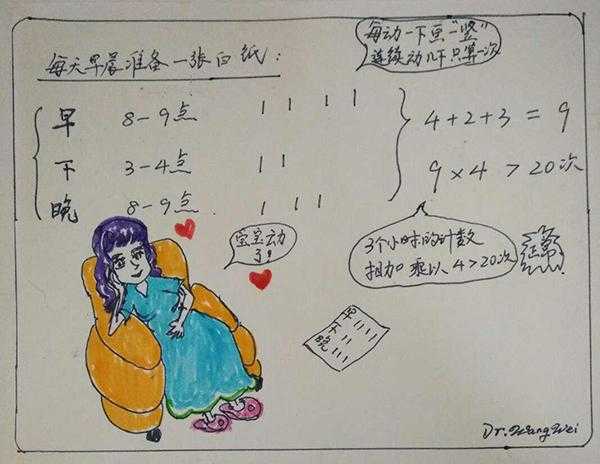 每动一下画“一竖”
连续动几下只算一次
每天早晨准备一张白纸：
早 8-9点 | | | |
下 3-4点 | |
晚 8-9点 | | |
4+2+3=9
9×4>20次
宝宝动
了！
3个小时的计数
相加乘以4>20次
正常
早 ||||
下 ||
晚 |||
Dr.WangWei